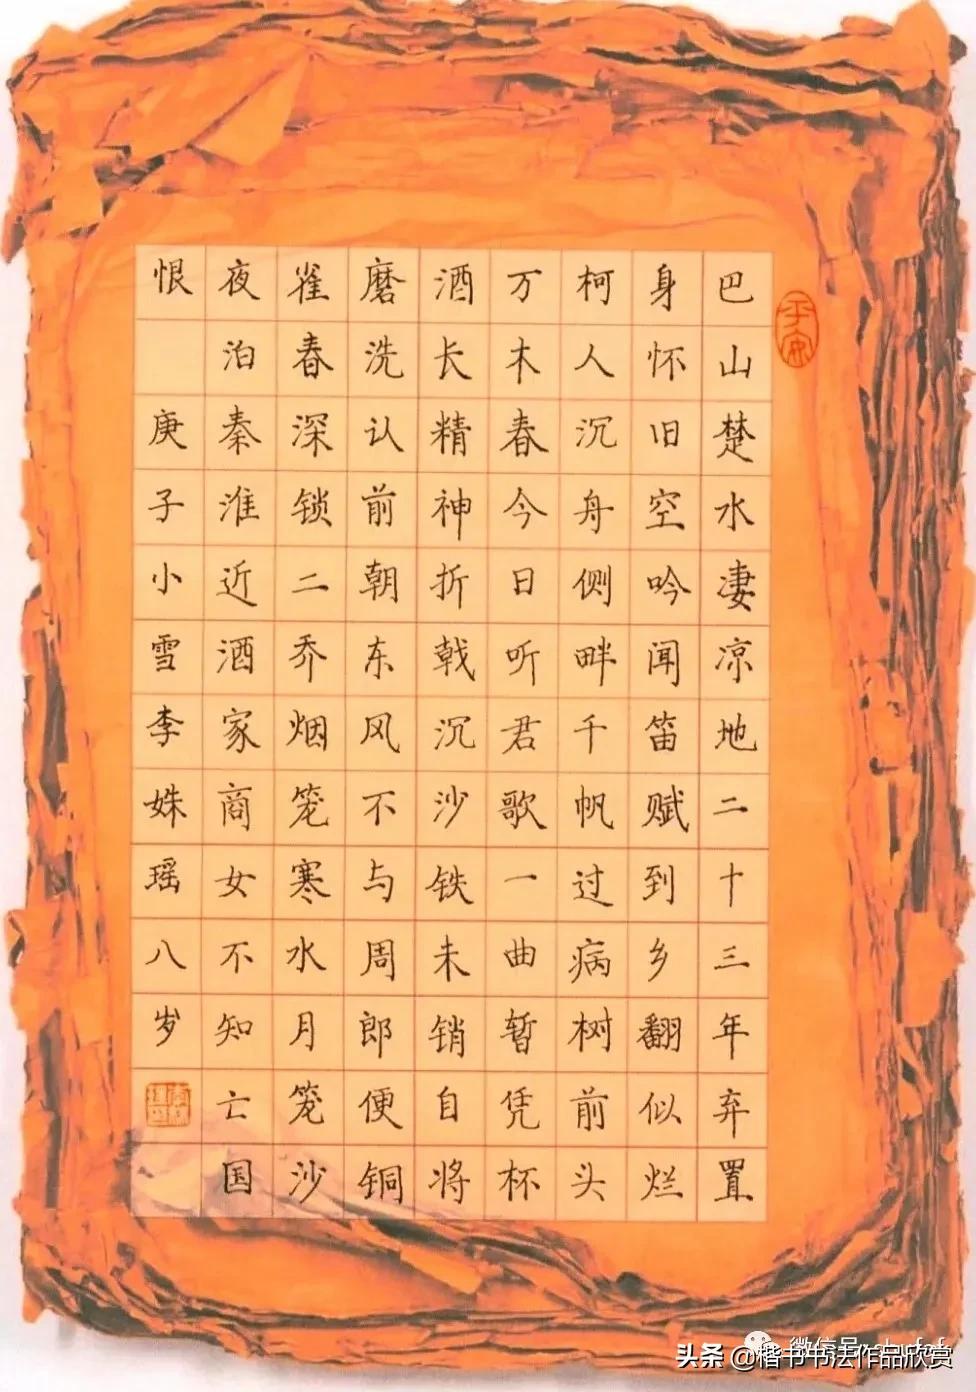 平安
巴山楚水凄凉地二十三年弃置
身怀旧空吟闻笛赋到乡翻似烂
柯人沉舟侧畔千帆过病树前头
万木春今日听君歌一曲暂凭杯
酒长精神折戟沉沙铁未销自将
磨洗认前朝东风不与周郎便铜
雀春深锁二乔烟笼寒水月笼沙
夜泊秦淮近酒家商女不知亡国
恨 庚子小雪李姝瑶八岁
头条 @楷书书法作品欣赏
微信号